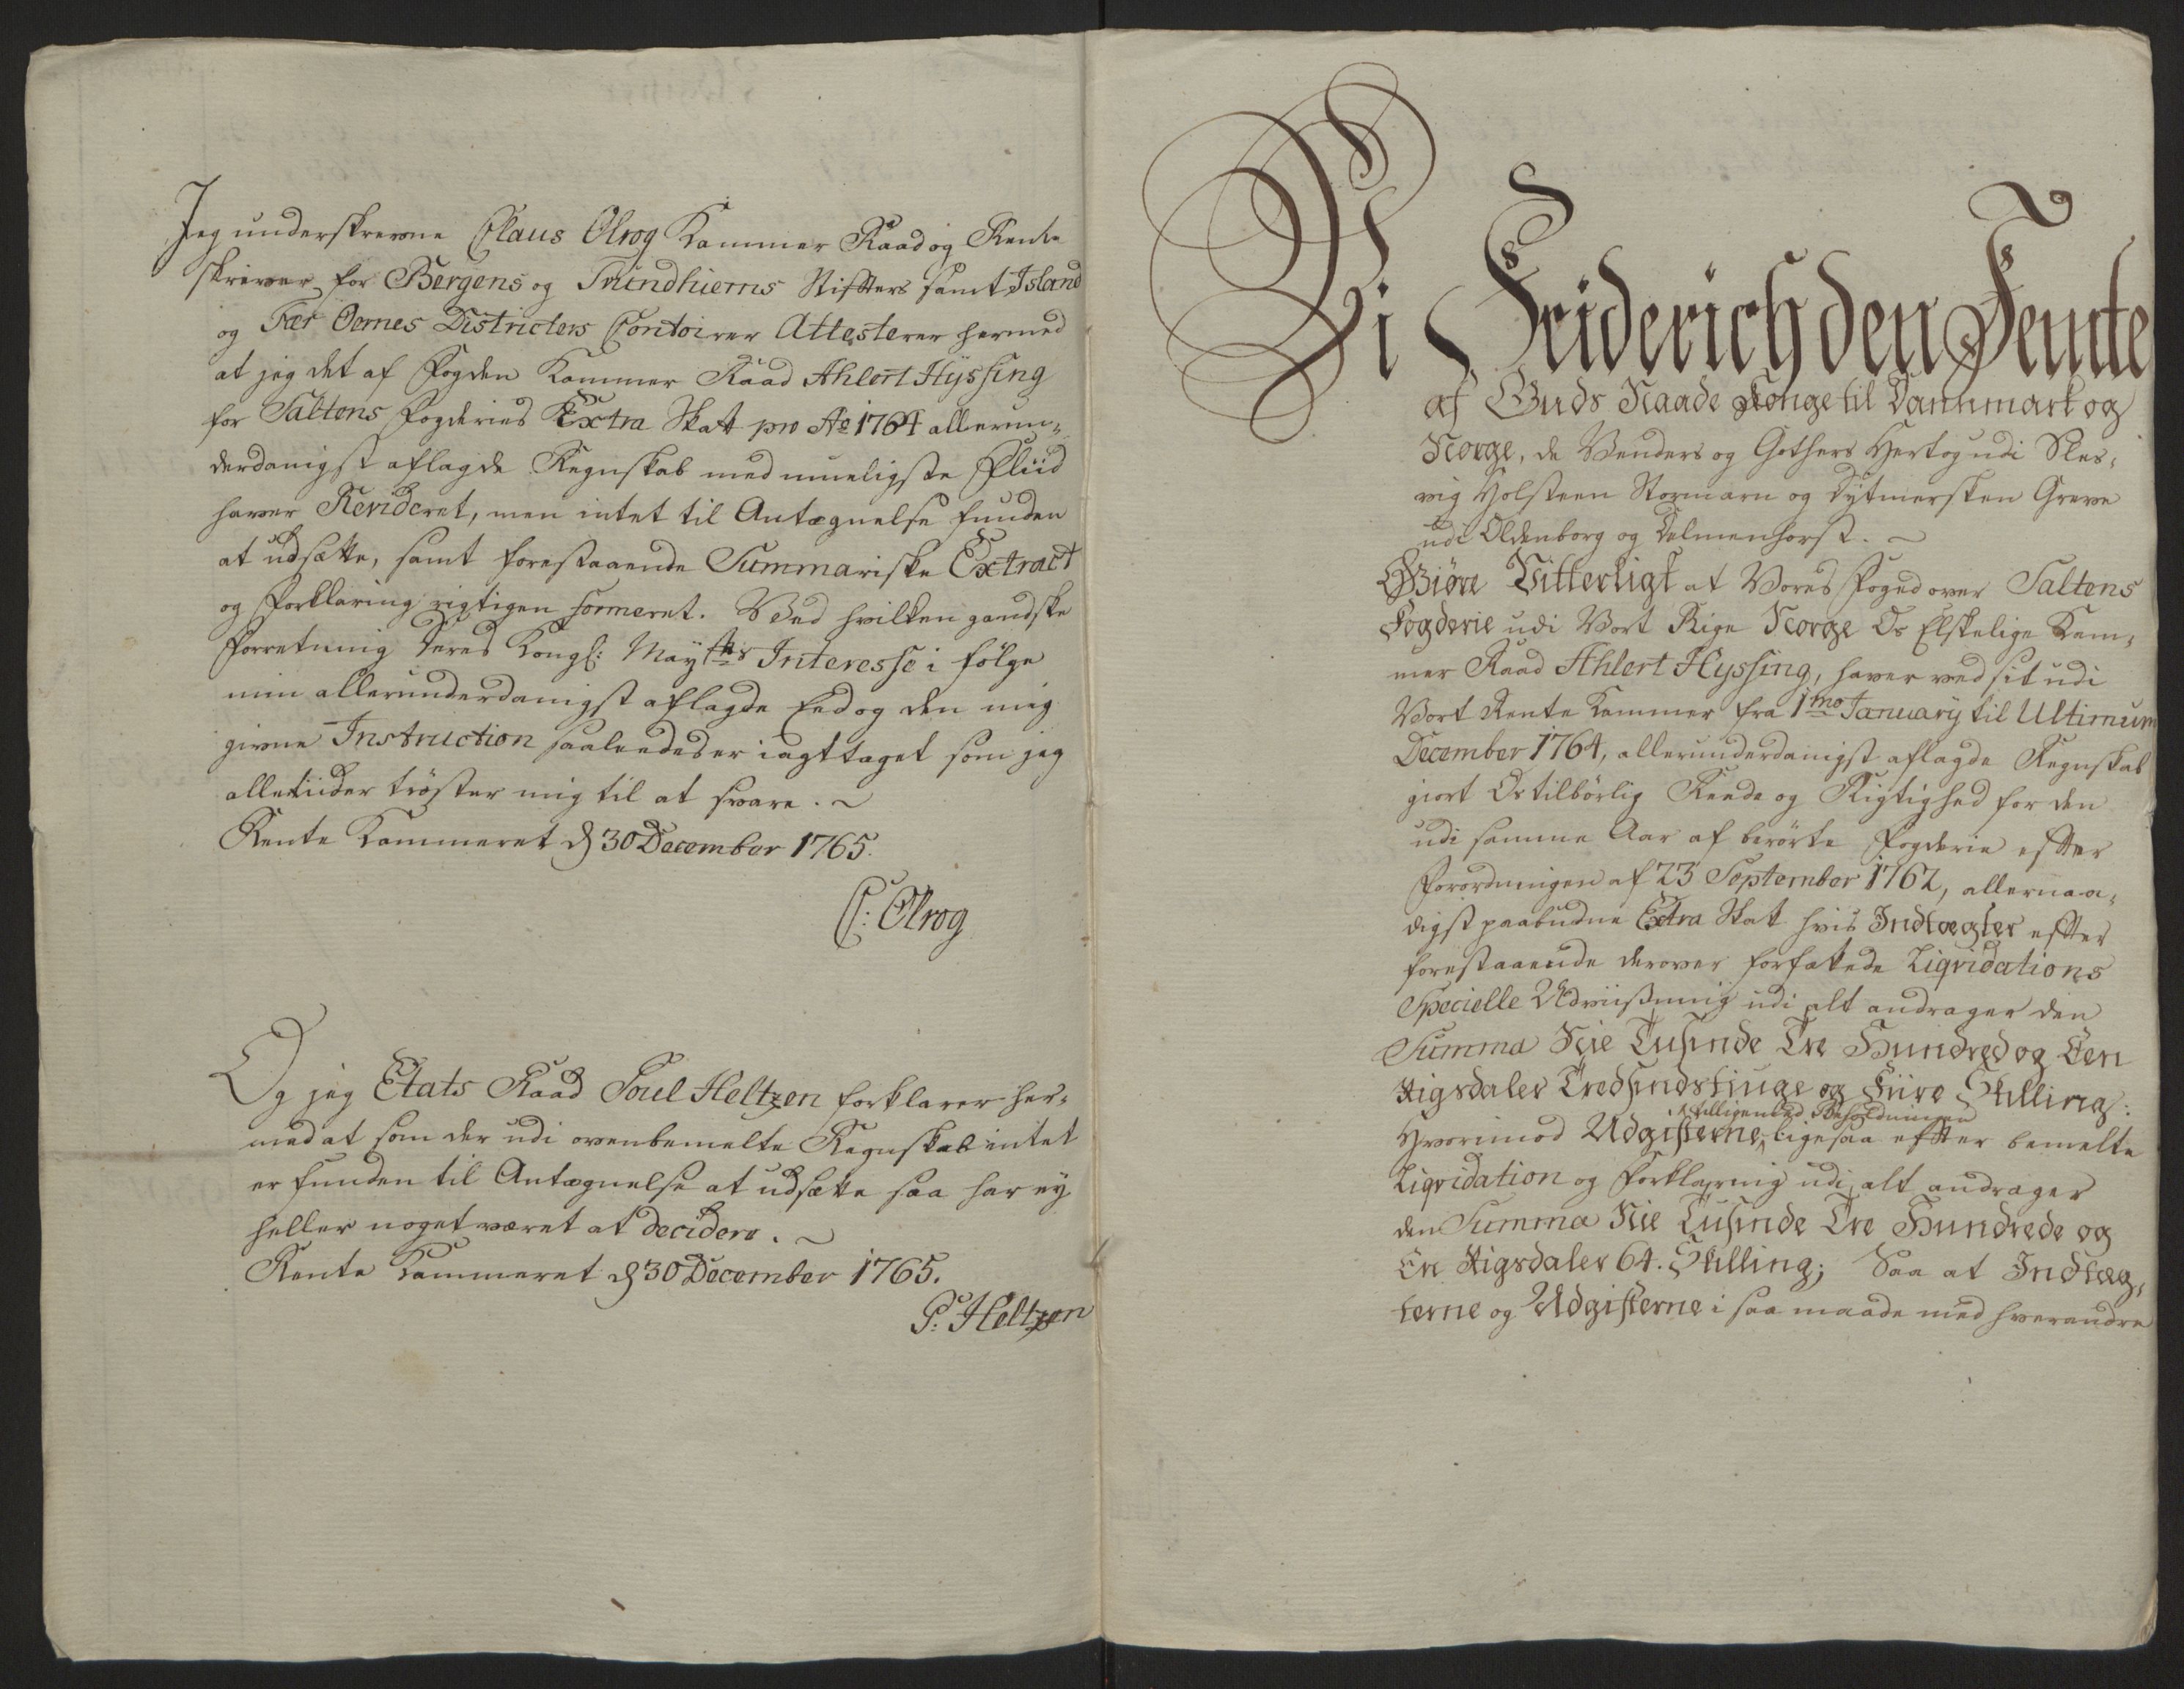 Jeg underskrevne Claus Olrog Kammer Raad og Rente
skriver for Bergens og Trundhiems Stifters samt Island
og Fær Öernes Districters Contoirer Attesterer hermed
at jeg det af Fogden Kammer Raad Ahlert Hÿssing
for Saltens Fogderies Extra Skat pro Ao 1764 allerun¬
derdanigst aflagde Regnskab med mueligste Fliid
haver Revideret, men intet til Antegnelse funden
at udsætte, samt forestaaende Summariske Extract
og Forklaring rigtigen formeret. Ved hvilken gandske
Forretning Deres Kongl: Maÿts Interesse i følge
min allerunderdanigst aflagde Eed og den mig
givne Instruction saaledes er iagttaget som jeg
alletiider trøster mig til at svare.
Rente Kammeret d 30 December 1765.
C: Olrog
Og jeg Etats Raad Poul Heltzen forklarer her¬
med at som der udi ovenbemelte Regnskab intet
er funden til Antegnelse at udsætte saa har eÿ
heller noget været at decidere.
Rente Kammeret d 30 December 1765.
P: Heltzen
Vi Friderich den Femte
af Guds Naade Konge til Dannmark og
Norge, de Venders og Gothers Hertog udi Sles¬
vig Holsteen Stormarn og Dÿtmersken Greve
udi Oldenborg og Delmenhorst.
Giøre Vitterligt at Vores Foged over Saltens
Fogderie udi Vort Rige Norge Os Elskelige Kam¬
mer Raad Ahlert Hyssing, haver ved sit udi
Vort Rente Kammer fra 1mo Januarÿ til Ultimum
December 1764, allerunderdanigst aflagde Regnskab
giort Os tilbørlig Reede og Rigtighed for den
udi samme Aar af berørte Fogderie efter
Forordningen af 23 September 1762, allernaa¬
digst paabudne Extra Skat hvis Indtægter efter
forestaaende derover forfattede Liqvidations
Specielle Udviisning udi alt andrager den
Summa Nie Tusinde Tre Hundred og Een
Rigsdaler Tredsindstiuge og Fiire Skilling:
Hvorimod Udgifterne, ligesaa efter bemelte
Liqvidation og Forklaring udi alt andrager
den Summa Nie Tusinde Tre Hundrede og
Een Rigsdaler 64. Skilling; Saa at Indtæg¬
terne og Udgifterne i saa maade med hverandre